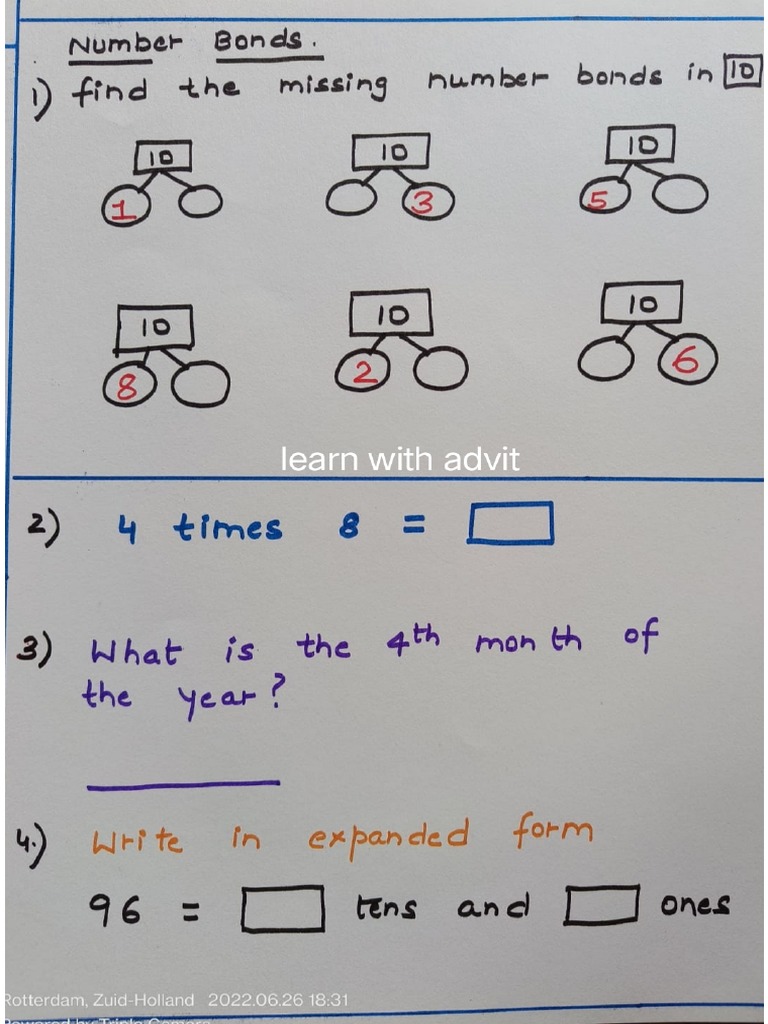 Number Bonds.
1) find the missing number bonds in 10
10 10 10
1 3 5
10 10 10
8 2 6
learn with advit
2) 4 times 8 =
3) What is the 4th month of
the year?
4.) Write in expanded form
96 = tens and ones
Rotterdam, Zuid-Holland 2022.06.26 18:31
Powered by Triple Camera